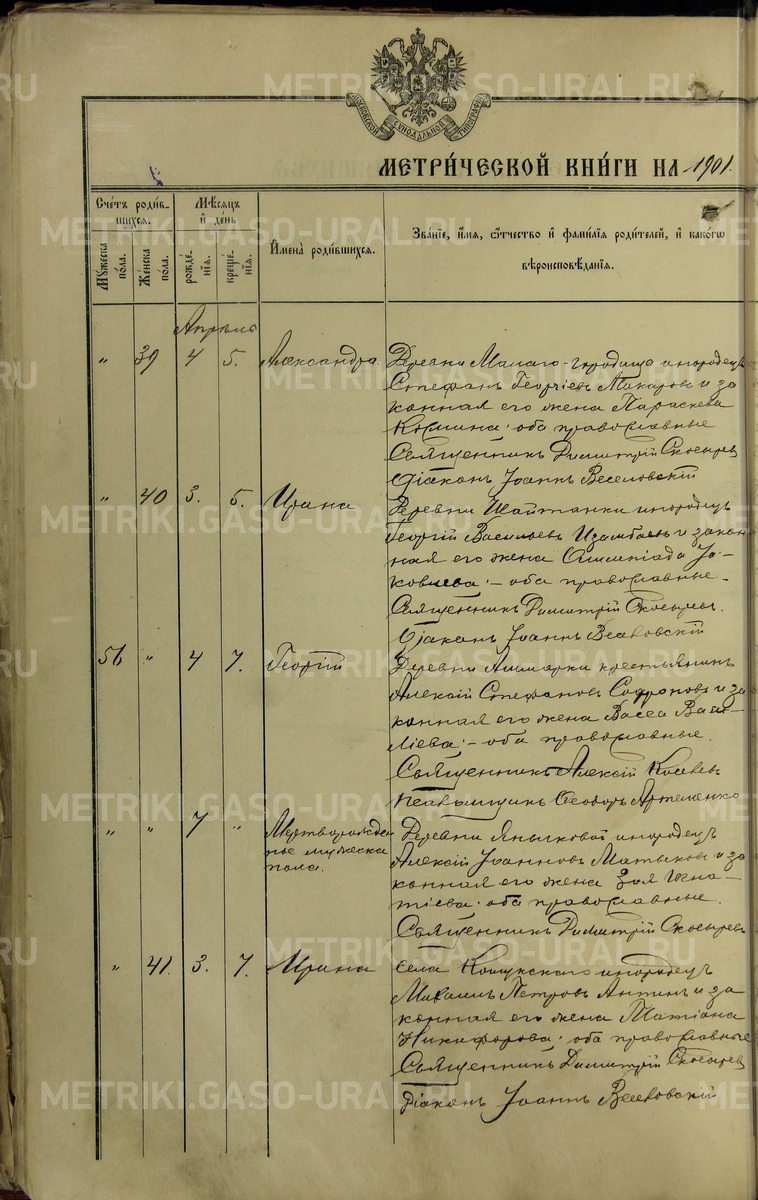 МЕТРИ́ЧЕСКОЙ КНИ́ГИ НА 1901.
Счéтъ роди́в-
шихся.
Мѣсяцъ
и́ де́нь
И҆мена̀ роди́вшихся.
Зва́нїе, и҆́мя, ѻ҆́тчество и҆ фами́лїя роди́телей, и҆ како́гѡ
вѣроисповѣ́данїя.
Му́жеска
по́ла.
Же́нска
по́ла.
рожде́-
нїя.
креще́-
нїя.
Апрѣль
" 39 4 5. Александра. Деревни Малаго-городища инородецъ
Стефанъ Георгіевъ Макаровъ и за
конная его жена Параскева
оба православные
Священникъ Димитрій Скосыревъ
Діаконъ Іоаннъ Веселовскій
" 40 3. 5. Ирина Деревни Шайтанки инородецъ
Георгій Васильевъ Изамбаевъ и закон
ная его жена Олимпіада Іа-
ковлева: - оба православные.
Священникъ Димитрій Скосыревъ.
Діаконъ Іоаннъ Веселовскій
56 " 4 7. Георгій Деревни крестьянинъ
Алексій Стефановъ Софроновъ и за
конная его жена Васса Васи-
ліева: - оба православные.
Священникъ Алексій
Псаломщикъ Ѳеодоръ Артеменко
" " 7 " Мертворожден
ное мужеска
пола.
Деревни Янычковой инородецъ
Алексій Іоанновъ Матыковъ и за
конная его жена Зоя Игна-
тіева: оба православные.
Священникъ Димитрій Скосыревъ
" 41. 3. 7. Ирина Села Кошукскаго инородецъ
Михаилъ Петровъ Антинъ и за
конная его жена Татіана
Никифорова: оба православные
Священникъ Димитрій Скосыревъ
Діаконъ Іоаннъ Веселовскій
METRIKI.GASO-URAL.RU